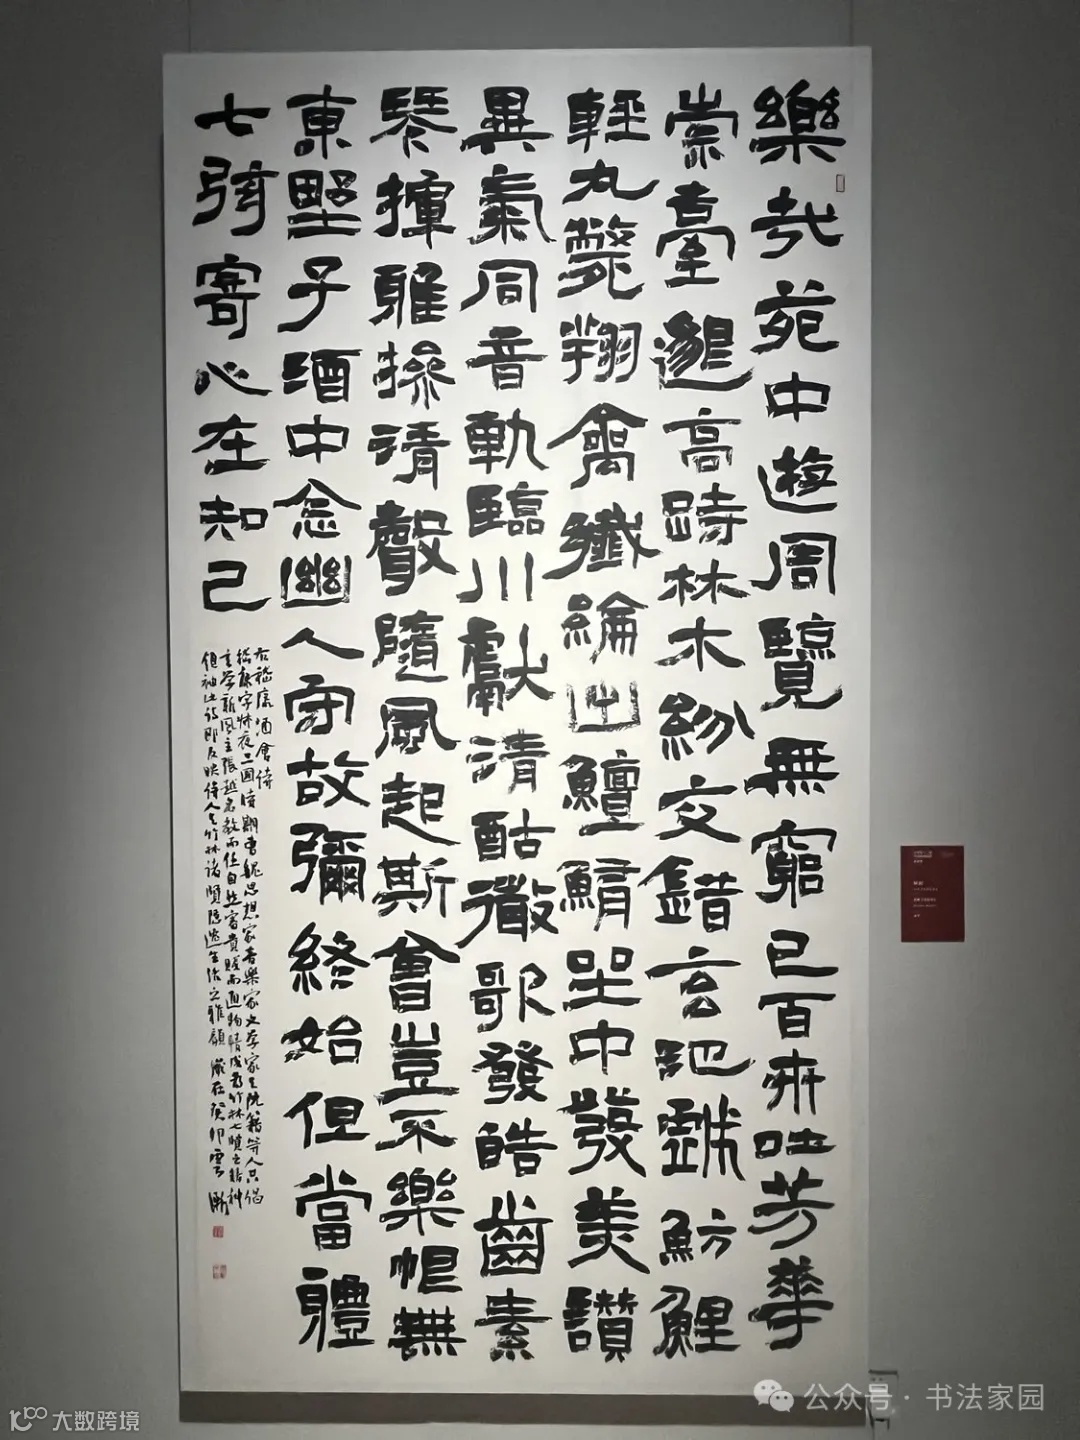 樂哉苑中遊周覽無窮已百卉吐芳華
崇臺邈高跱林木紛交錯玄池戲魴鯉
輕丸斃翔禽纖綸出鱣鮪坐中發美讚
異氣同音軌臨川獻清酤微歌發皓齒素
琴揮雅操清聲隨風起斯會豈不樂恨無
東野子酒中念幽人守故彌終始但當體
七弦寄心在知己
右嵇康酒會詩
嵇康字叔夜三國時期曹魏思想家音樂家文學家與阮籍等人共倡
玄學新風主張越名教而任自然審貴賤而通物情成為竹林七賢之精神
領袖此詩即反映詩人與竹林諸賢隱逸生活之雅韻 歲在癸卯
公众号 · 书法家园
大数跨境